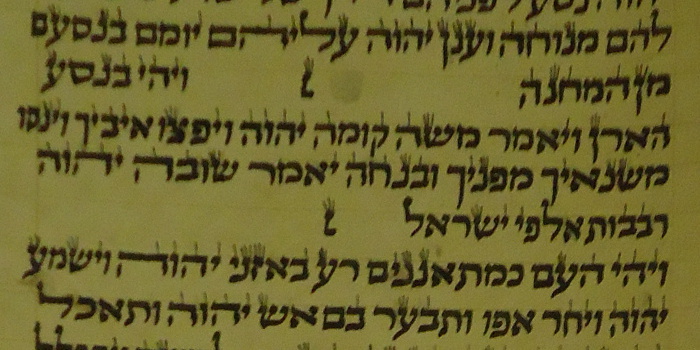 להם מנוחה וענן יהוה עליהם יומם בנסעם
מן המחנה ׆ ויהי בנסע
הארן ויאמר משה קומה יהוה ויפצו איביך וינסו
משנאיך מפניך ובנחה יאמר שובה יהוה
רבבות אלפי ישראל ׆
ויהי העם כמתאננים רע באזני יהוה וישמע
יהוה ויחר אפו ותבער בם אש יהוה ותאכל